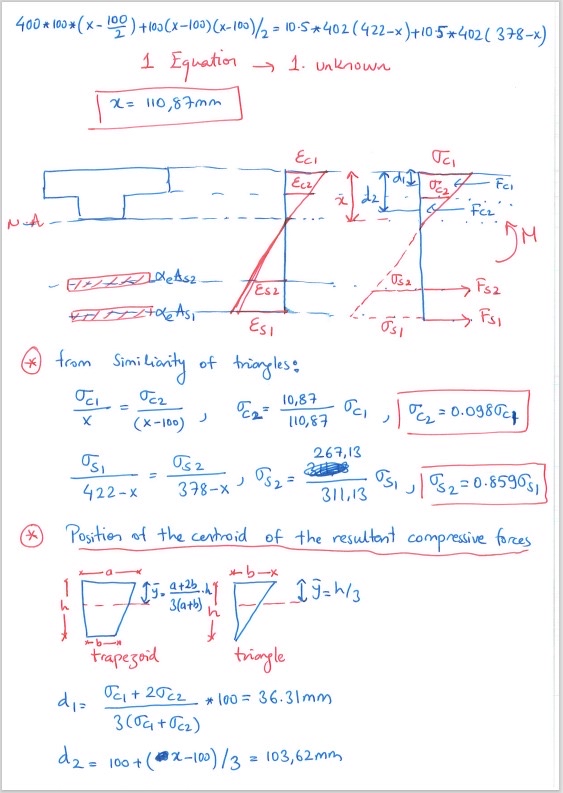 400*100*(x-100/2)+100(x-100)(x-100)/2=10.5*402(422-x)+10.5*402(378-x)
1 Equation → 1. unknown
x= 110,87mm
εc1 σc1
εc2 d1 σc2 Fc1
x d2 Fc2
N.A M
αeAs2 εs2 σs2 Fs2
αeAs1 εs1 σs1 Fs1
* from Similiarity of triangles:
σc1/x = σc2/(x-100) , σc2= 10,87/110,87 σc1 , σc2=0.098σc1
σs1/422-x = σs2/378-x , σs2= 267,13/311,13 σs1 , σs2=0.859σs1
* Position of the centroid of the resultant compressive forces
a h b ȳ= a+2b/3(a+b) .h b h ȳ=h/3
trapezoid triangle
d1= σc1+2σc2/3(σc1+σc2) *100= 36.31mm
d2= 100+(x-100)/3 = 103,62mm